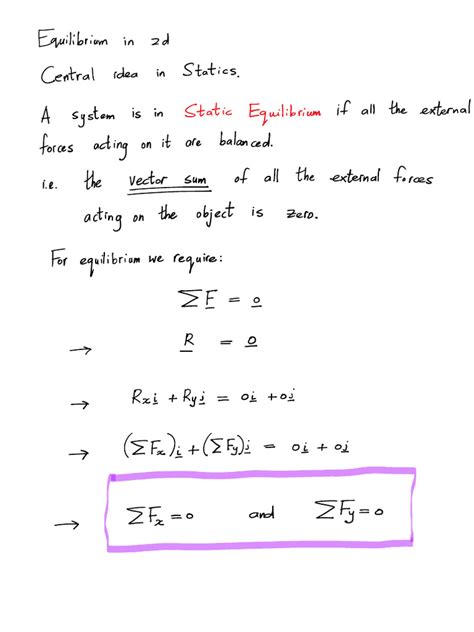 Equilibrium in 2d
Central idea in Statics.
A system is in Static Equilibrium if all the external
forces acting on it are balanced.
i.e. the vector sum of all the external forces
acting on the object is zero.
For equilibrium we require:
∑F = 0
→ R = 0
→ Rxi + Ryj = 0i + 0j
→ (∑Fx)i + (∑Fy)j = 0i + 0j
→ ∑Fx = 0 and ∑Fy = 0